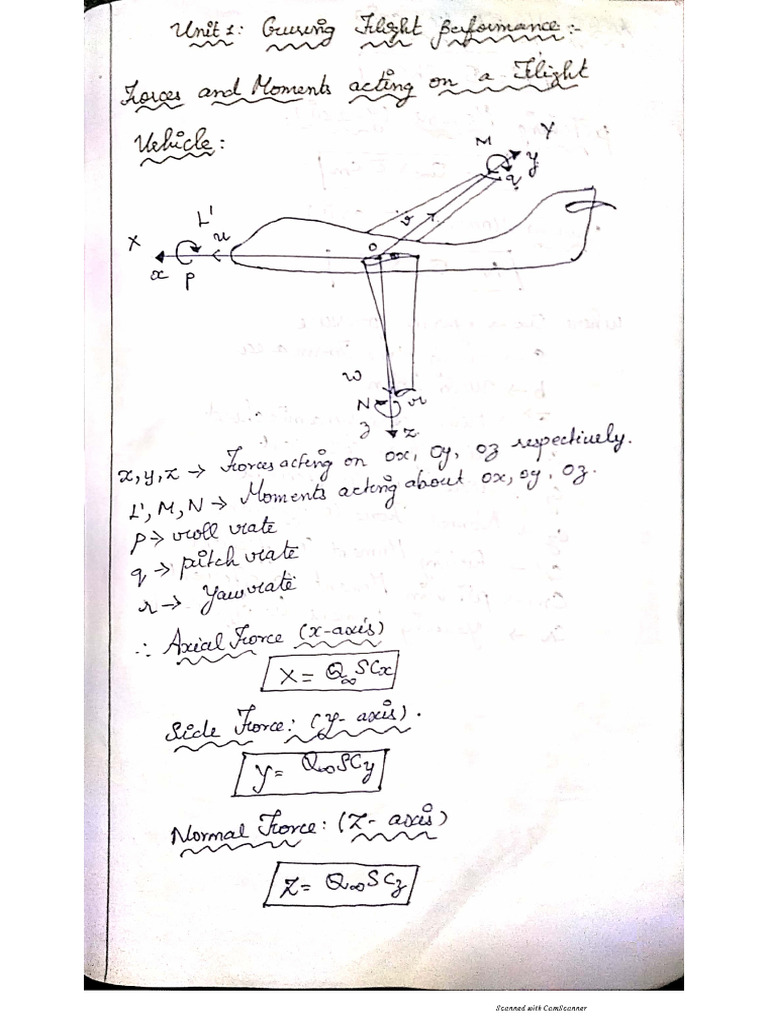 Unit 1: Cruising Flight performance:-
Forces and Moments acting on a Flight
Vehicle:
M Y
y
q
L'
v
X u
O
x p
w
N r
z Z
X, Y, Z → Forces acting on ox, oy, oz respectively.
L', M, N → Moments acting about ox, oy, oz.
p → roll rate
q → pitch rate
r → Yaw rate
∴ Axial Force (x-axis)
X = Q∞SCx
Side Force: (y-axis).
Y = Q∞SCy
Normal Force: (Z-axis)
Z = Q∞SCz
Scanned with CamScanner